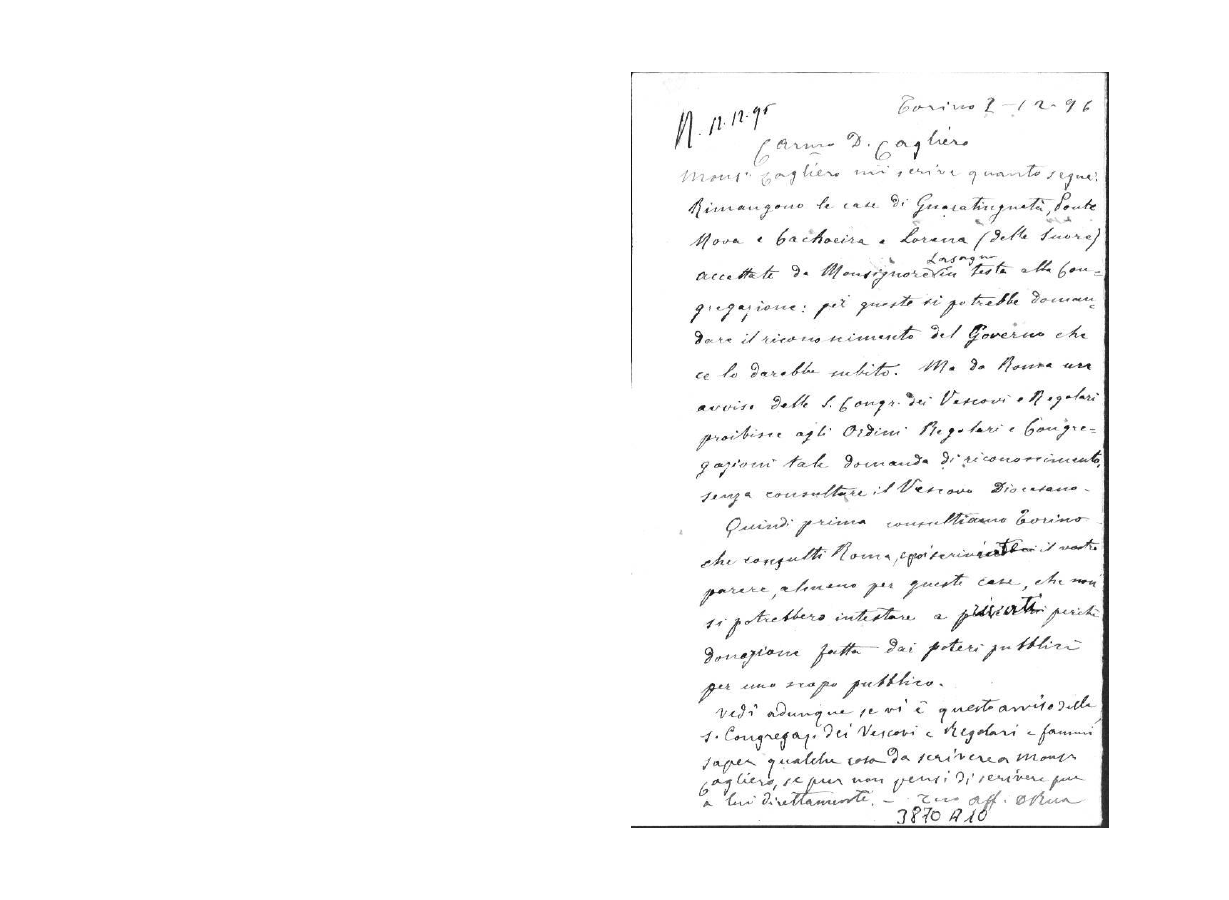 Torino 7-12-96
R. 12.12.96
Carmo D. Cagliero
Monsr. Cagliero mi scrive quanto segue:
Rimangono le case di Guaratinguetà, Ponte
Nova e Cachoeira e Lorena (delle Suore)
accettate da Monsignore Lasagna in testa alla Con=
gregazione: per queste si potrebbe doman=
dare il riconoscimento del Governo che
ce lo darebbe subito. Ma da Roma un
avviso della S. Congr. dei Vescovi e Regolari
proibisce agli Ordini Regolari e Congre=
gazioni tale domanda di riconoscimento,
senza consultare il Vescovo Diocesano.
Quindi prima consultiamo Torino
che consulti Roma, e poi il vostro
parere, almeno per queste case, che non
si potrebbero intestare a perchè
donazione fatta dai poteri pubblici
per uno scopo pubblico.
Vedi adunque se vi è questo avviso della
S. Congregaz. dei Vescovi e Regolari e fammi
saper qualche cosa da scrivere a Monsr
Cagliero, se pur non pensi di scrivere pur
a lui direttamente. - Tuo aff. D Rua
3870 A 10